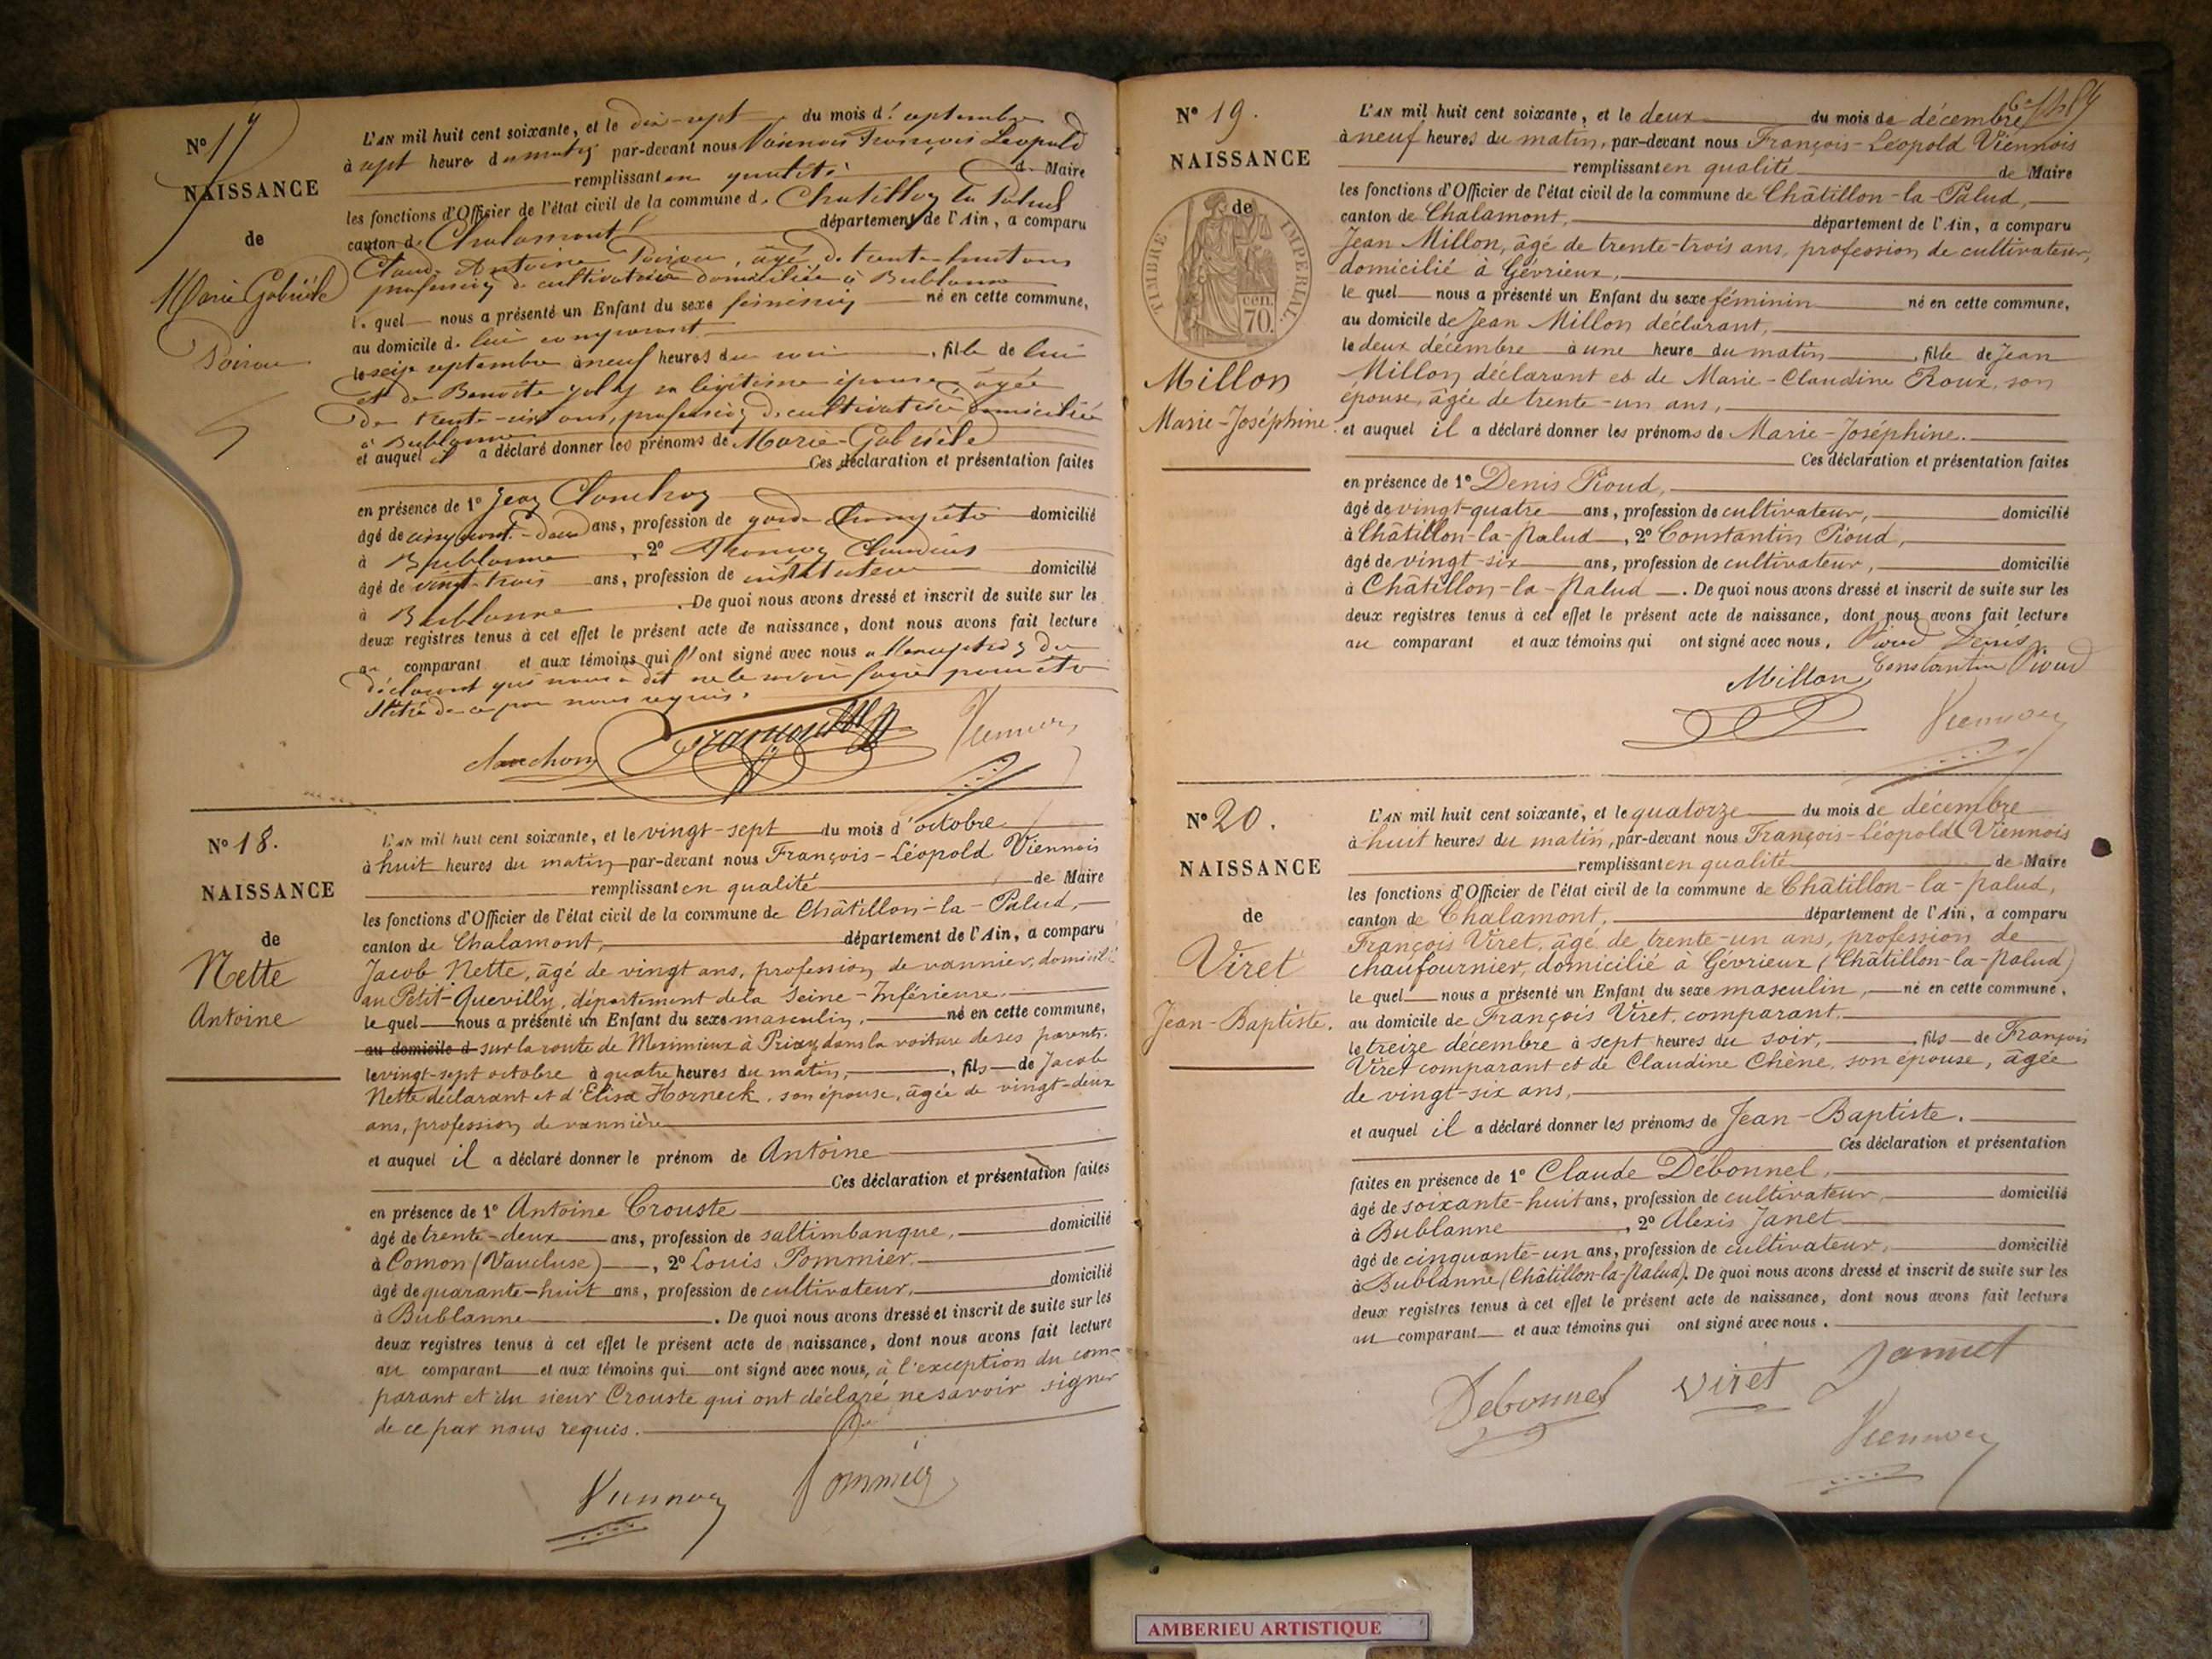 Nº 17
NAISSANCE
de
Marie Gabrièle
Poirou
L'AN mil huit cent soixante, et le dix-sept du mois d. septembre
à sept heure du matin par-devant nous Viennois François Léopold
remplissant en qualité de Maire
les fonctions d'Officier de l'état civil de la commune d. Chatillon la Palud
canton de Chalamont département de l'Ain, a comparu
Claude Antoine Poirou, âgé de trente-huit ans
profession de cultivateur domicilié à Bublanne
le quel nous a présenté un Enfant du sexe féminin né en cette commune,
au domicile de lui comparant
le seize septembre à neuf heures du soir, fille de lui
et de Benoite sa légitime épouse, âgée
de trente-six ans, profession de cultivatrice domiciliée
à Bublanne
et auquel il a déclaré donner les prénoms de Marie-Gabrièle
Ces déclaration et présentation faites
en présence de 1º Jean Clonchon
âgé de cinquante-deux ans, profession de garde champêtre domicilié
à Bublanne, 2º Claudius
âgé de vingt-trois ans, profession de instituteur domicilié
à Bublanne. De quoi nous avons dressé et inscrit de suite sur les
deux registres tenus à cet effet le présent acte de naissance, dont nous avons fait lecture
au comparant et aux témoins qui ont signé avec nous à l'exception du
déclarant qui nous a dit ne le savoir faire pour être
illitré de ce par nous requis.
Viennois
Nº 18.
NAISSANCE
de
Nette
Antoine
L'AN mil huit cent soixante, et le vingt-sept du mois d'octobre
à huit heures du matin par-devant nous François-Léopold Viennois
remplissant en qualité de Maire
les fonctions d'Officier de l'état civil de la commune de Châtillon-la-Palud,
canton de Chalamont, département de l'Ain, a comparu
Jacob Nette, âgé de vingt ans, profession de vannier, domicilié
au Petit-Quevilly, département de la Seine-Inférieure.
le quel nous a présenté un Enfant du sexe masculin, né en cette commune,
au domicile d sur la route de Meximieux à Priay dans la voiture de ses parents.
le vingt-sept octobre à quatre heures du matin, fils de Jacob
Nette déclarant et d'Elisa Horneck, son épouse, âgée de vingt-deux
ans, profession de vannière
et auquel il a déclaré donner le prénom de Antoine
Ces déclaration et présentation faites
en présence de 1º Antoine Crouste
âgé de trente-deux ans, profession de saltimbanque, domicilié
à Comon (Vaucluse), 2º Louis Pommier,
âgé de quarante-huit ans, profession de cultivateur, domicilié
à Bublanne. De quoi nous avons dressé et inscrit de suite sur les
deux registres tenus à cet effet le présent acte de naissance, dont nous avons fait lecture
au comparant et aux témoins qui ont signé avec nous, à l'exception du com-
parant et du sieur Crouste qui ont déclaré ne savoir signer
de ce par nous requis.
Viennois Pommier
6e 1484
Nº 19.
NAISSANCE
de
TIMBRE IMPERIAL
70 cen.
Millon
Marie-Joséphine.
L'AN mil huit cent soixante, et le deux du mois de décembre
à neuf heures du matin, par-devant nous François-Léopold Viennois
remplissant en qualité de Maire
les fonctions d'Officier de l'état civil de la commune de Châtillon-la-Palud,
canton de Chalamont, département de l'Ain, a comparu
Jean Millon, âgé de trente-trois ans, profession de cultivateur,
domicilié à Gévrieux,
le quel nous a présenté un Enfant du sexe féminin né en cette commune,
au domicile de Jean Millon déclarant,
le deux décembre à une heure du matin, fille de Jean
Millon déclarant et de Marie-Claudine Roux, son
épouse, âgée de trente-un ans,
et auquel il a déclaré donner les prénoms de Marie-Joséphine.
Ces déclaration et présentation faites
en présence de 1º Denis Pioud,
âgé de vingt-quatre ans, profession de cultivateur, domicilié
à Châtillon-la-Palud, 2º Constantin Pioud,
âgé de vingt-six ans, profession de cultivateur, domicilié
à Châtillon-la-Palud. De quoi nous avons dressé et inscrit de suite sur les
deux registres tenus à cet effet le présent acte de naissance, dont nous avons fait lecture
au comparant et aux témoins qui ont signé avec nous. Pioud Denis
Millon Constantin Pioud
Viennois
Nº 20.
NAISSANCE
de
Viret
Jean-Baptiste.
L'AN mil huit cent soixante, et le quatorze du mois de décembre
à huit heures du matin, par-devant nous François-Léopold Viennois
remplissant en qualité de Maire
les fonctions d'Officier de l'état civil de la commune de Châtillon-la-Palud,
canton de Chalamont, département de l'Ain, a comparu
François Viret, âgé de trente-un ans, profession de
chaufournier, domicilié à Gévrieux (Châtillon-la-Palud)
le quel nous a présenté un Enfant du sexe masculin, né en cette commune,
au domicile de François Viret, comparant.
le treize décembre à sept heures du soir, fils de François
Viret comparant et de Claudine Chêne, son épouse, âgée
de vingt-six ans,
et auquel il a déclaré donner les prénoms de Jean-Baptiste.
Ces déclaration et présentation
faites en présence de 1º Claude Débonnel,
âgé de soixante-huit ans, profession de cultivateur, domicilié
à Bublanne, 2º Alexis Janet
âgé de cinquante-un ans, profession de cultivateur, domicilié
à Bublanne (Châtillon-la-Palud). De quoi nous avons dressé et inscrit de suite sur les
deux registres tenus à cet effet le présent acte de naissance, dont nous avons fait lecture
au comparant et aux témoins qui ont signé avec nous.
Debonnel viret Jannet
Viennois
AMBERIEU ARTISTIQUE